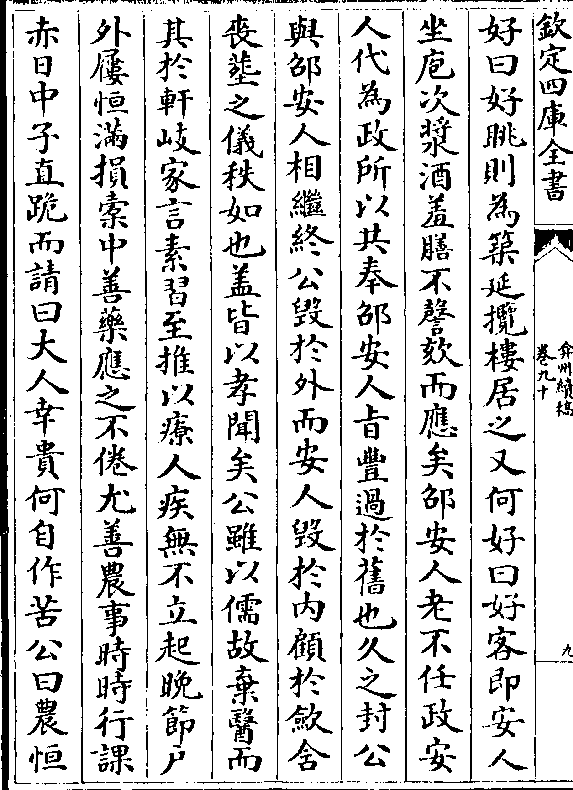 欽定四庫全書
弇州續稿
卷九十
九
好曰好眺則為築延攬樓居之又何好曰好客即安人
坐庖次漿酒羞膳不謦欬而應矣邵安人老不任政安
人代為政所以共奉邵安人旨豐過於舊也久之封公
與邵安人相繼終公毀於外而安人毀於内顧於歛含
喪塟之儀秩如也盖皆以孝聞矣公雖以儒故棄醫而
其於軒岐家言素習至推以療人疾無不立起晚節户
外屨恒滿損槖中善藥應之不倦尤善農事時時行課
赤日中子直跪而請曰大人幸貴何自作苦公曰農恒